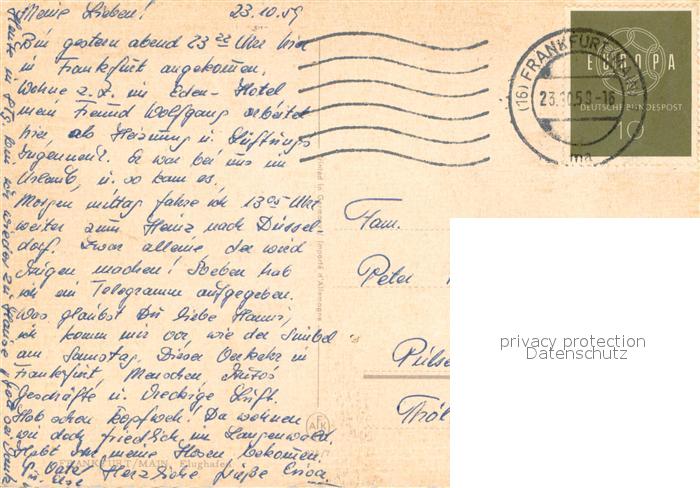 Meine Lieben! 23.10.59
Bin gestern abend 23 22 Uhr hier
in Frankfurt angekommen.
Wohne z.Z. im Eden-Hotel
mein Freund Wolfgang arbeitet
hier als Heizung u. Lüftungs
Ingenieur. Er war bei mir im
Urlaub, u. so kam es,
Morgen mittag fahre ich 13 05 Uhr
weiter zum Heinz nach Düssel-
dorf. Zwar alleine der wird
Augen machen! Soeben hab
ich ein Telegramm aufgegeben.
Was glaubst Du liebe Hanni,
ich komm mir vor, wie der
am Samstag. Dieser Verkehr in
Frankfurt, Menschen, Autos
Geschäfte u. dreckige Luft.
Hab schon Kopfweh! Da wohnen
wir doch friedlich im Langenwald.
Habt Ihr meine Hosen bekommen.
Herzliche Grüße
FRANKFURT/MAIN, Flughafen
Printed in Germany Imprimé d'Allemagne
AFK
(16) FRANKFURT (MAIN)
23.10.59-16
ma
EUROPA
DEUTSCHE BUNDESPOST
10
Fam.
Peter
privacy protection
Datenschutz